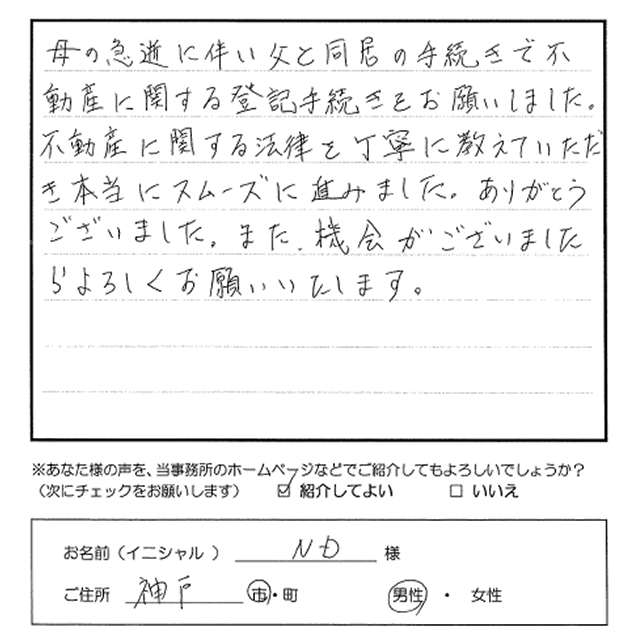 母の急逝に伴い父と同居の手続きで不
動産に関する登記手続きをお願いしました。
不動産に関する法律を丁寧に教えていただ
き本当にスムーズに進みました。ありがとう
ございました。また、機会がございました
らよろしくお願いいたします。
※あなた様の声を、当事務所のホームページなどでご紹介してもよろしいでしょうか?
(次にチェックをお願いします) ☑ 紹介してよい □ いいえ
お名前(イニシャル) ND 様
ご住所 神戸 市・町 男性 ・ 女性